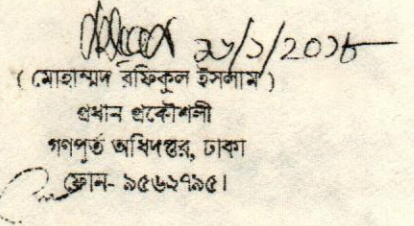 ২৮/১/২০১৮
( মোহাম্মদ রফিকুল ইসলাম )
প্রধান প্রকৌশলী
গণপূর্ত অধিদপ্তর, ঢাকা
ফোন- ৯৫৬২৭৯৫।